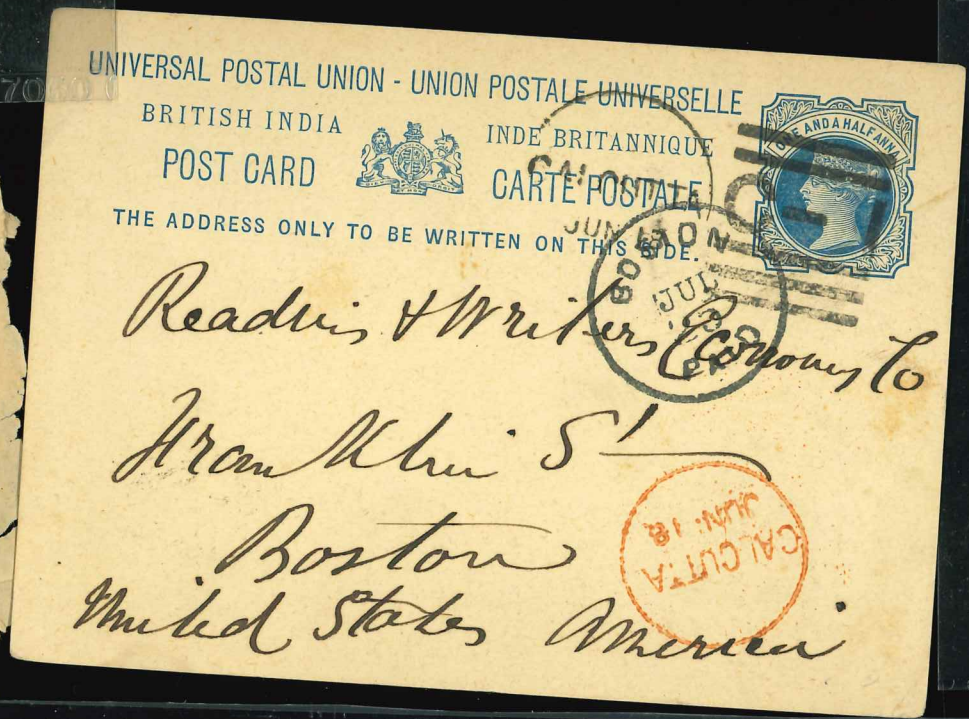 UNIVERSAL POSTAL UNION - UNION POSTALE UNIVERSELLE
BRITISH INDIA INDE BRITANNIQUE
POST CARD CARTE POSTALE
THE ADDRESS ONLY TO BE WRITTEN ON THIS SIDE.
ONE AND A HALF ANNA
CALCUTTA
JUN
BOSTON
JUL
PAID
Readers & Writers Economy Co
Franklin St
Boston
United States America
CALCUTTA
JUN. 18